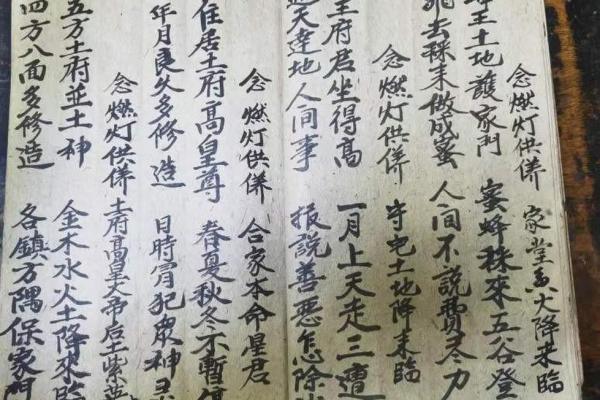 念燃灯供併 家堂香火降来臨
王土地護家門 蜜蜂秼來五谷登
去秼来做成蜜 人间不説費尽力
念燃灯供併 守宅土地降来臨
王府君坐得高 一月上天走三遭
天達地人间事 报説善恶怎除
念燃灯供併 合家本命星君
住居土府高皇尊 春夏秋冬不暫停
年月良久多修造 日時冒犯眾神
念燃灯供併 土府高皇大帝后土紫英
五方土府並土神 金木水火土降來臨
四方八面多修造 各鎮方隅保家門